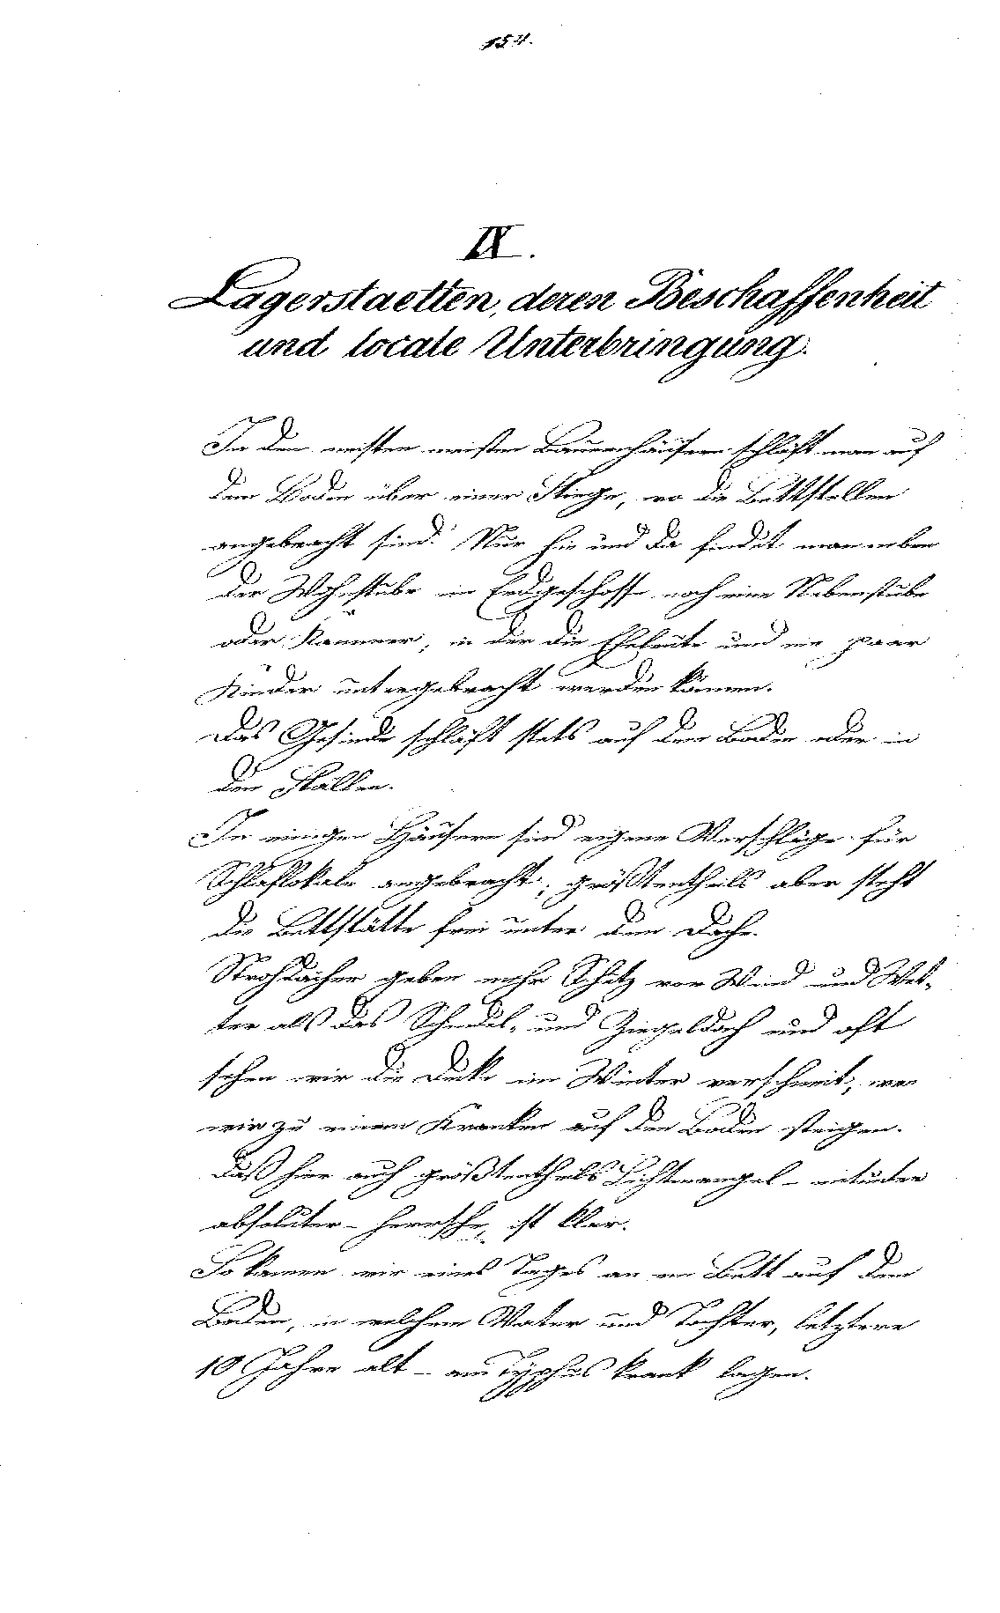 154.
IX.
Lagerstaetten, deren Beschaffenheit
und locale Unterbringung.
In den meisten meisten Bauernhäusern schläft man auf
dem Boden über einer Stiege, wo die Bettstellen
angebracht sind. Nur hie und da findet man neben
der Wohnstube im Erdgeschoße noch eine Nebenstube
oder Kammer, in der die Eheleute und ein paar
Kinder untergebracht werden können.
Das Gesinde schläft stets auf dem Boden oder in
den Ställen.
In einigen Häusern sind eigene Verschläge für
Schlaflokale angebracht, größtentheils aber steht
die Bettstätte frei unter dem Dache.
Strohdächer geben mehr Schutz vor Wind und Wet-
ter als das Schindel- und Ziegeldach und oft
sehen wir die Decke im Winter verschneit, wen
wir zu einem Kranken auf den Boden steigen.
Daß hier auch größtentheils Lichtmangel - mitunter
absoluter - herrsche, ist klar.
So kamen wir eines Tages an ein Bett auf dem
Boden, in welchem Vater und Tochter, letztere
10 Jahre alt - am Typhus krank lagen.